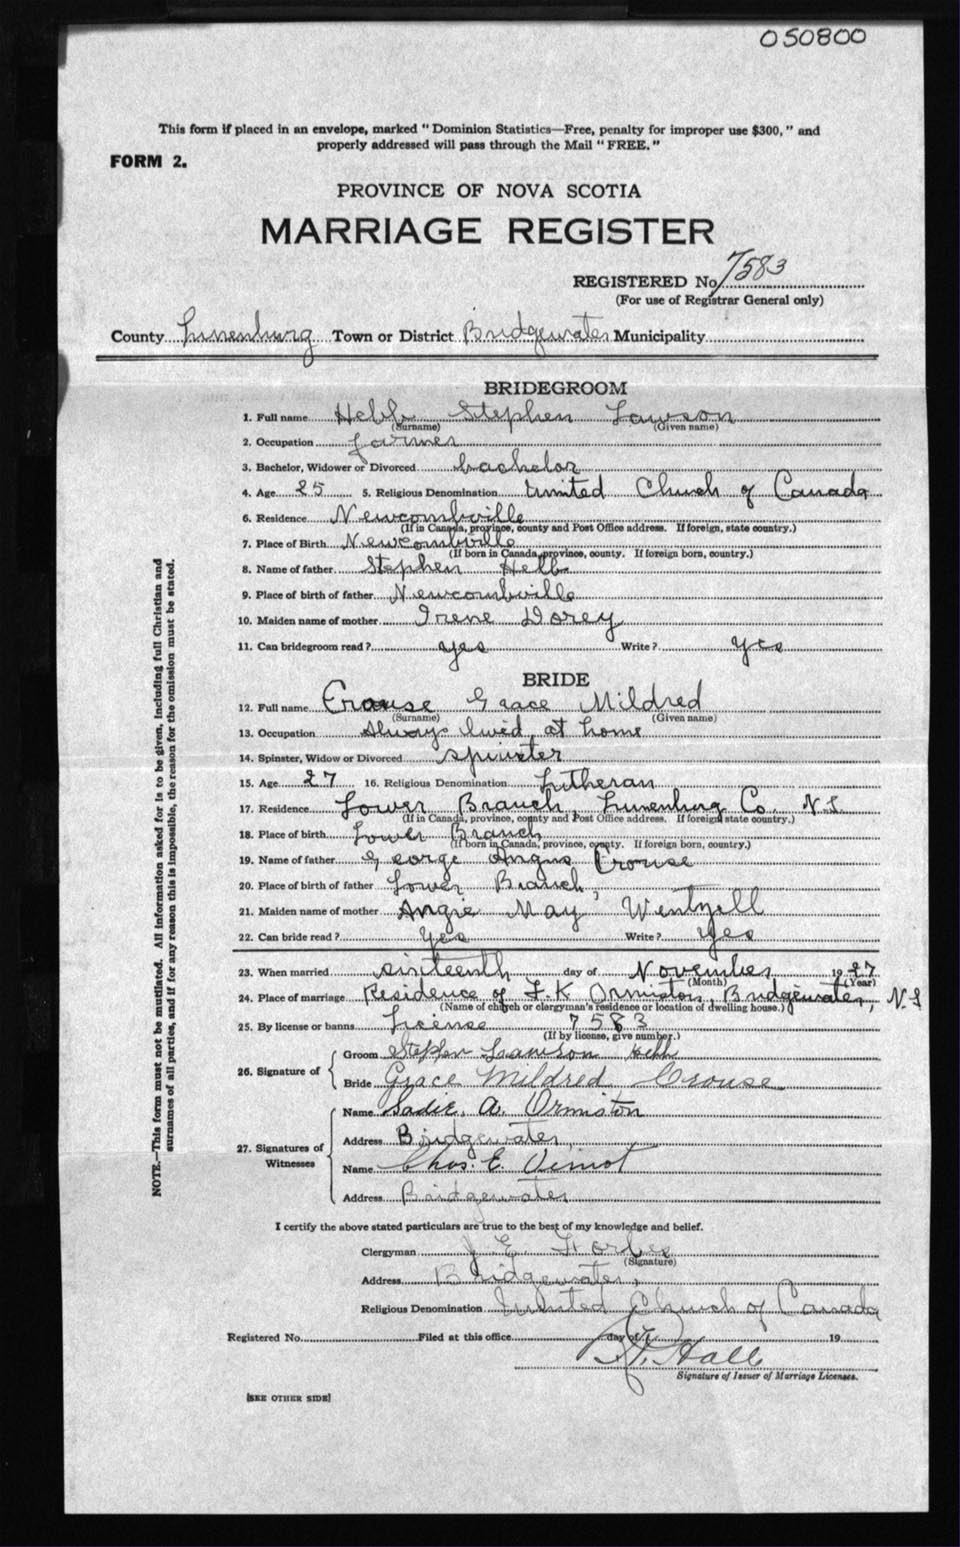 050800
This form if placed in an envelope, marked "Dominion Statistics—Free, penalty for improper use $300," and
properly addressed will pass through the Mail "FREE."
FORM 2.
PROVINCE OF NOVA SCOTIA
MARRIAGE REGISTER
REGISTERED No. 7583
(For use of Registrar General only)
County Lunenburg Town or District Bridgewater Municipality
BRIDEGROOM
1. Full name Hebb Stephen Lawson
(Surname) (Given name)
2. Occupation farmer
3. Bachelor, Widower or Divorced bachelor
4. Age 25 5. Religious Denomination United Church of Canada
6. Residence Newcombville
(If in Canada, province, county and Post Office address. If foreign, state country.)
7. Place of Birth Newcombville
(If born in Canada, province, county. If foreign born, country.)
8. Name of father Stephen Hebb
9. Place of birth of father Newcombville
10. Maiden name of mother Irene Dorey
11. Can bridegroom read? yes Write? yes
BRIDE
12. Full name Crouse Grace Mildred
(Surname) (Given name)
13. Occupation Always lived at home
14. Spinster, Widow or Divorced spinster
15. Age 27 16. Religious Denomination Lutheran
17. Residence Lower Branch, Lunenburg Co. N.S.
(If in Canada, province, county and Post Office address. If foreign, state country.)
18. Place of birth Lower Branch
(If born in Canada, province, county. If foreign born, country.)
19. Name of father George Angus Crouse
20. Place of birth of father Lower Branch
21. Maiden name of mother Angie May Wentzell
22. Can bride read? Yes Write? Yes
23. When married sixteenth day of November 1927
(Month) (Year)
24. Place of marriage Residence of F. K Ormiston, Bridgewater, N.S
(Name of church or clergyman's residence or location of dwelling house.)
25. By license or banns License 7583
(If by license, give number.)
26. Signature of
Groom Stephen Lawson Hebb
Bride Grace Mildred Crouse
27. Signatures of Witnesses
Name Sadie A. Ormiston
Address Bridgewater,
Name Chas. E.
Address Bridgewater
I certify the above stated particulars are true to the best of my knowledge and belief.
Clergyman J E. Forbes
(Signature)
Address Bridgewater,
Religious Denomination United Church of Canada
Registered No. Filed at this office day of 19
Hall
Signature of Issuer of Marriage Licenses.
[SEE OTHER SIDE]
NOTE.—This form must not be mutilated. All information asked for is to be given, including full Christian and
surnames of all parties, and if for any reason this is impossible, the reason for the omission must be stated.